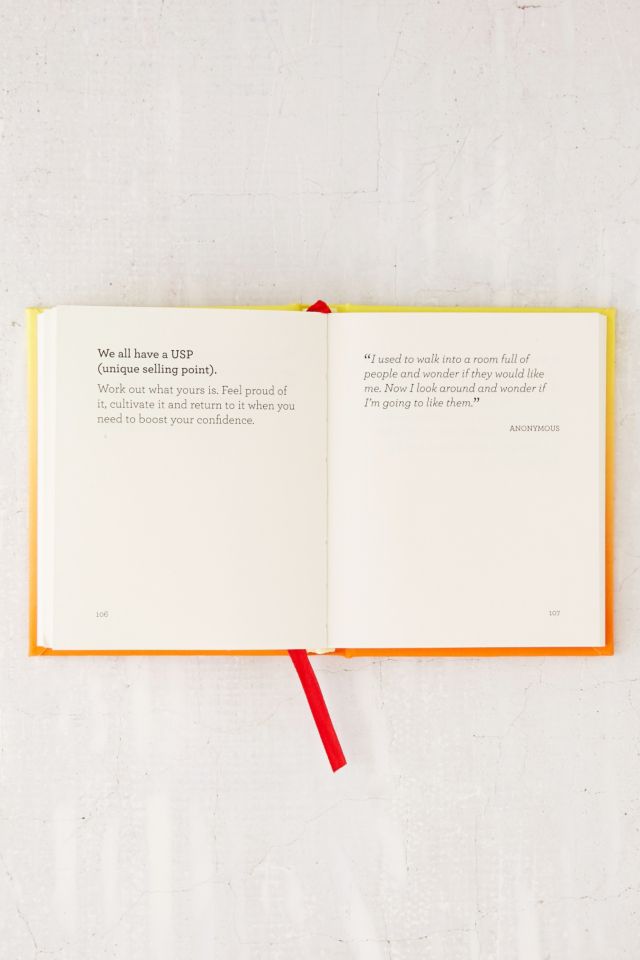 We all have a USP
(unique selling point).
Work out what yours is. Feel proud of
it, cultivate it and return to it when you
need to boost your confidence.
106
“I used to walk into a room full of
people and wonder if they would like
me. Now I look around and wonder if
I'm going to like them.”
ANONYMOUS
107